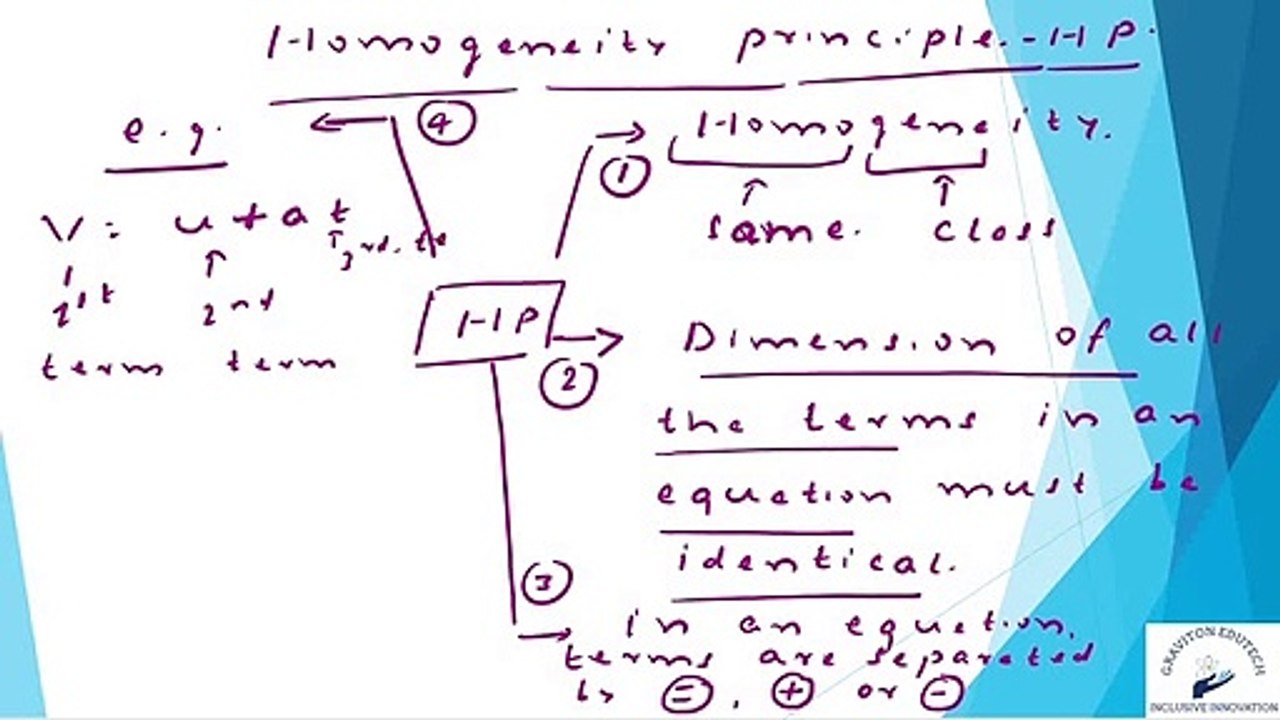 Homogeneity principle.-HP.
e.g.
④
① Homogeneity.
same. class
V = u + a t
1st 2nd 3rd. te
term term
HP
② Dimension of all
the terms in an
equation must be
identical.
③ in an equation,
terms are separated
by =, + or -
GRAVITON EDUTECH
INCLUSIVE INNOVATION